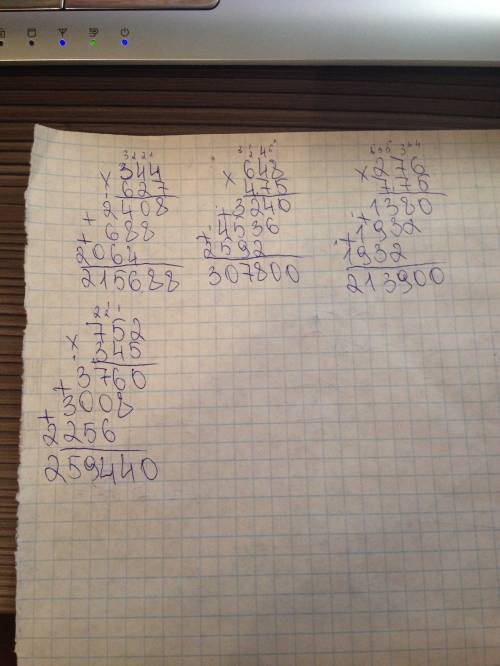 3 2 2 1
× 344
627
+ 2408
+ 688
2064
215688
× 648
475
+ 3240
+ 4536
2592
307800
× 276
775
+ 1380
+ 1932
1932
213900
2 2 1
× 752
345
+ 3760
+ 3008
2256
259440